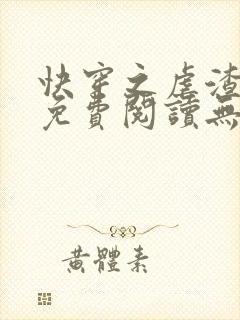 快穿之虐渣
免費閱讀無
黃體素